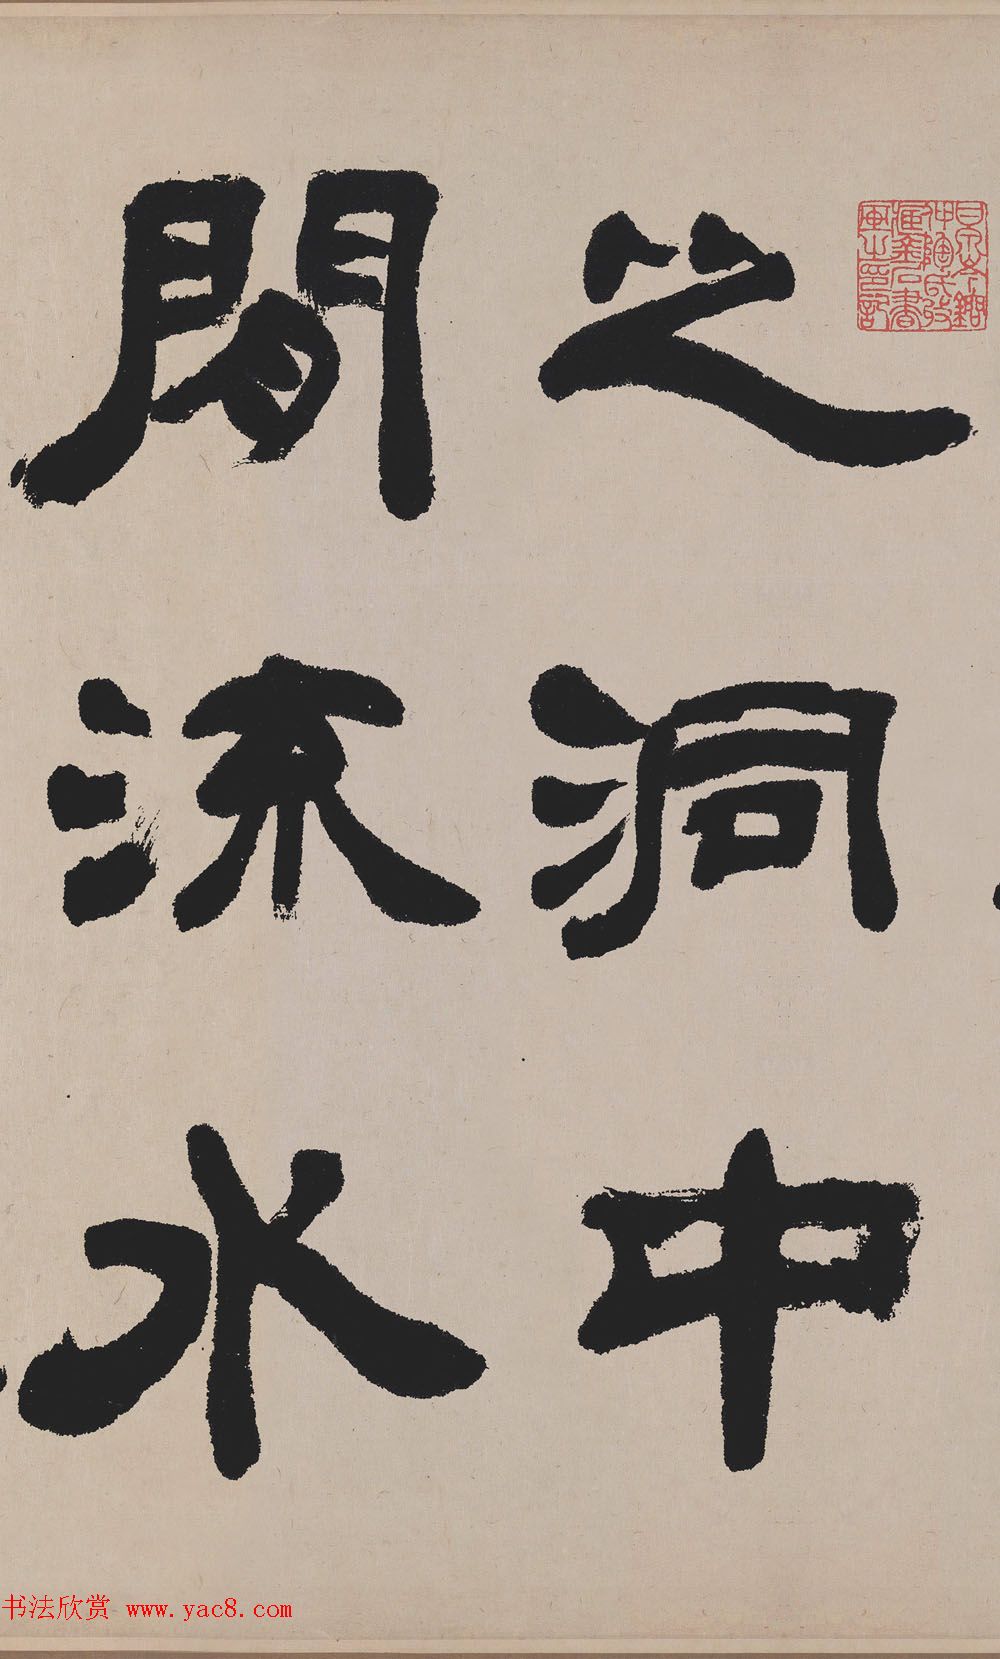 之洞中
閒流水
书法欣赏 www.yac8.com